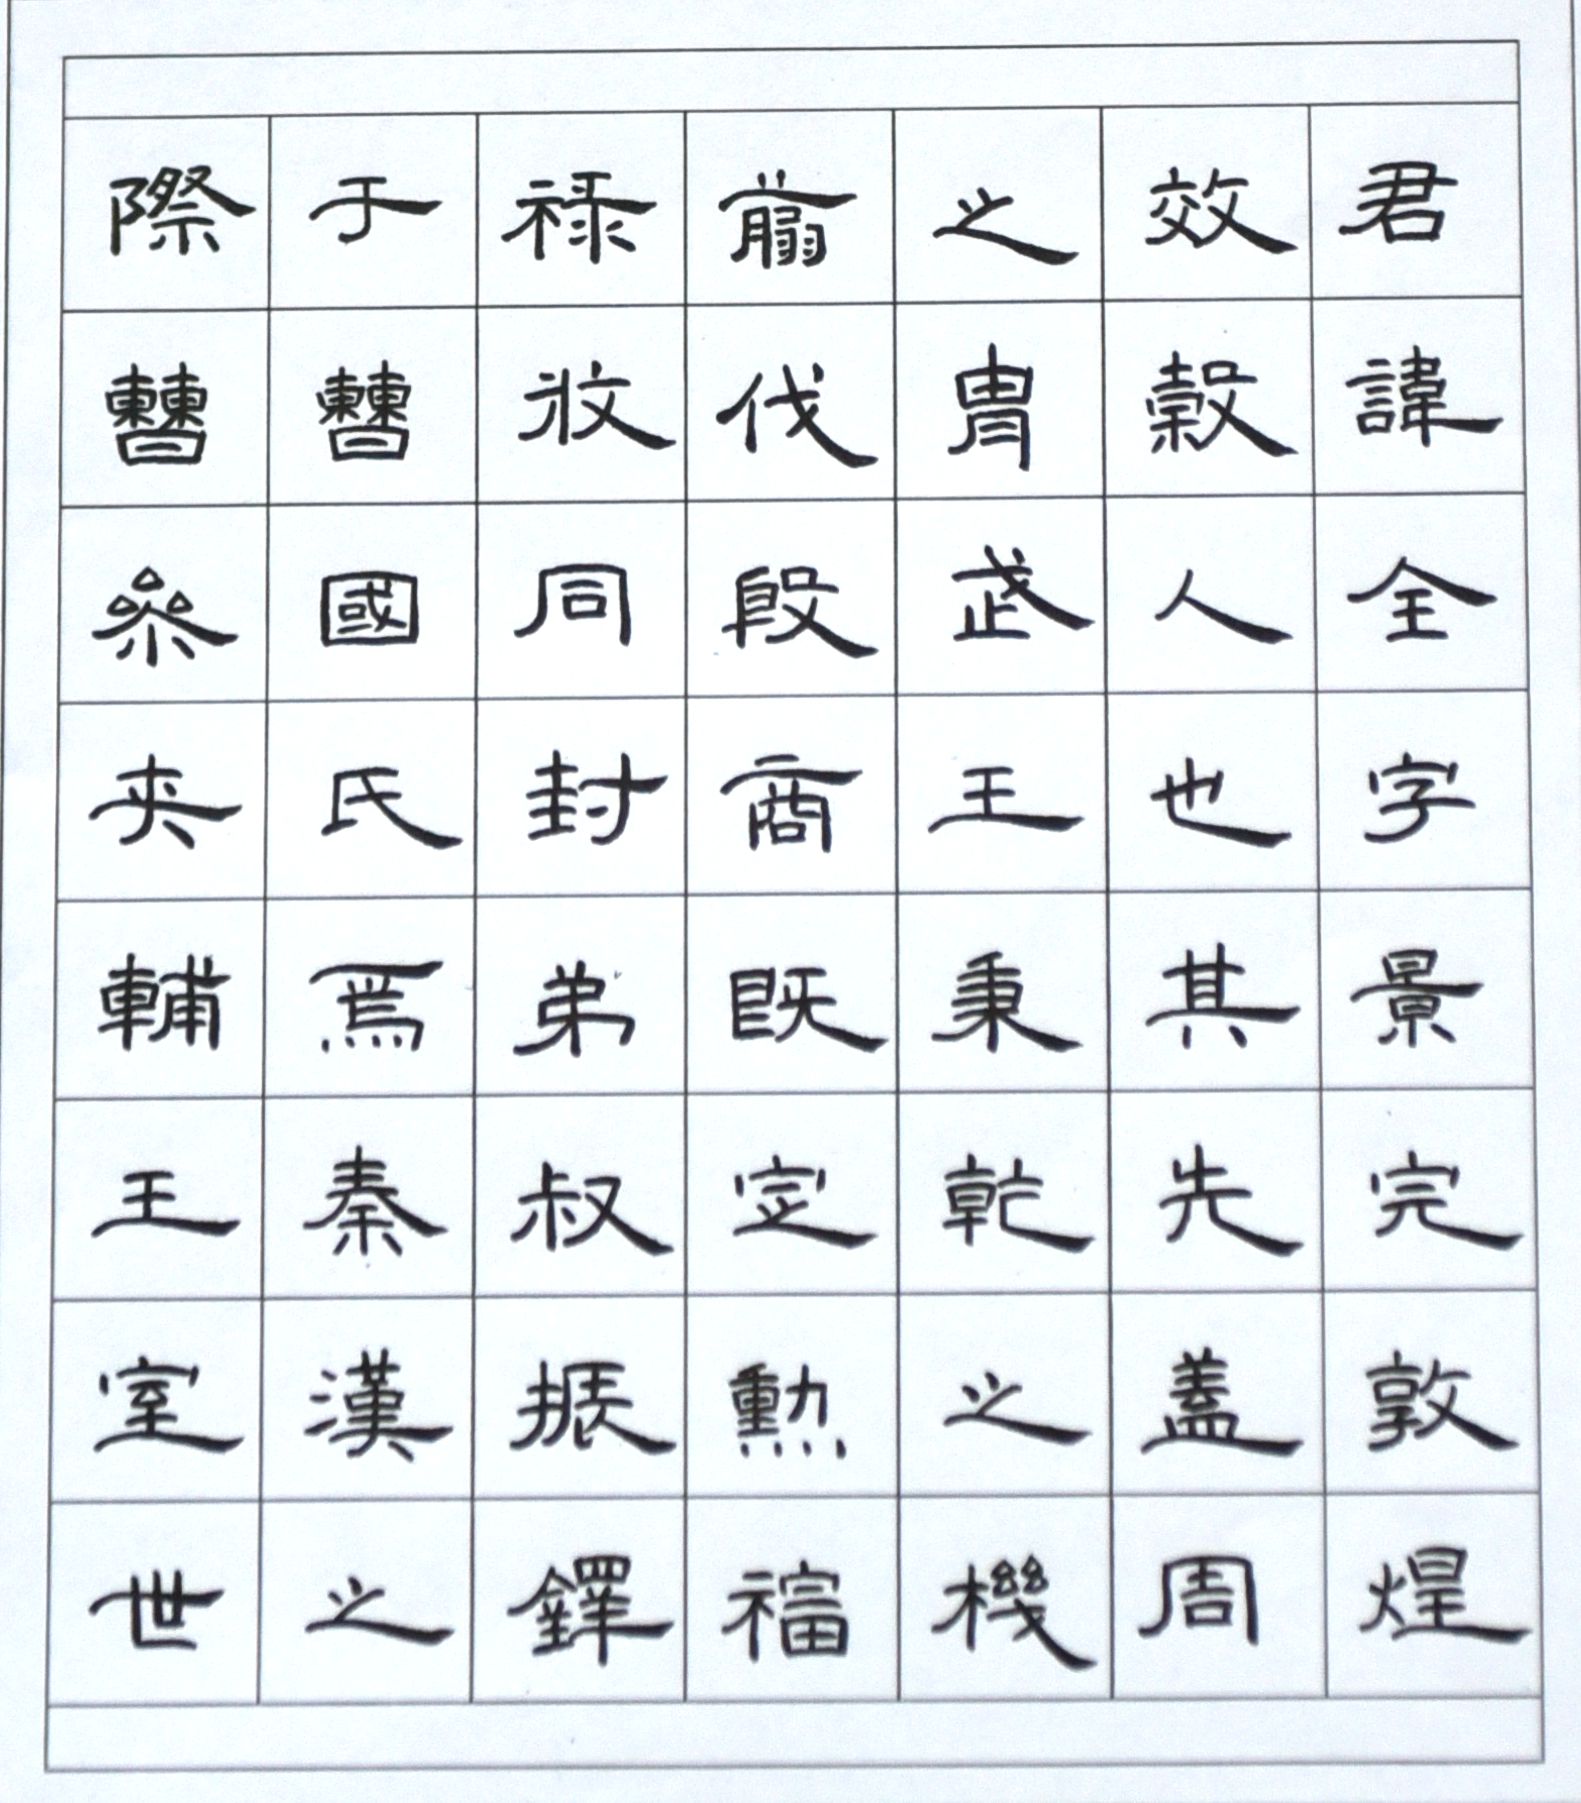 君諱全字景完敦煌
效穀人也其先蓋周
之胄武王秉乾之機
翦伐殷商既定爾勲福
禄攸同封弟叔振鐸
于曹國氏焉秦漢之
際曹參夾輔王室世